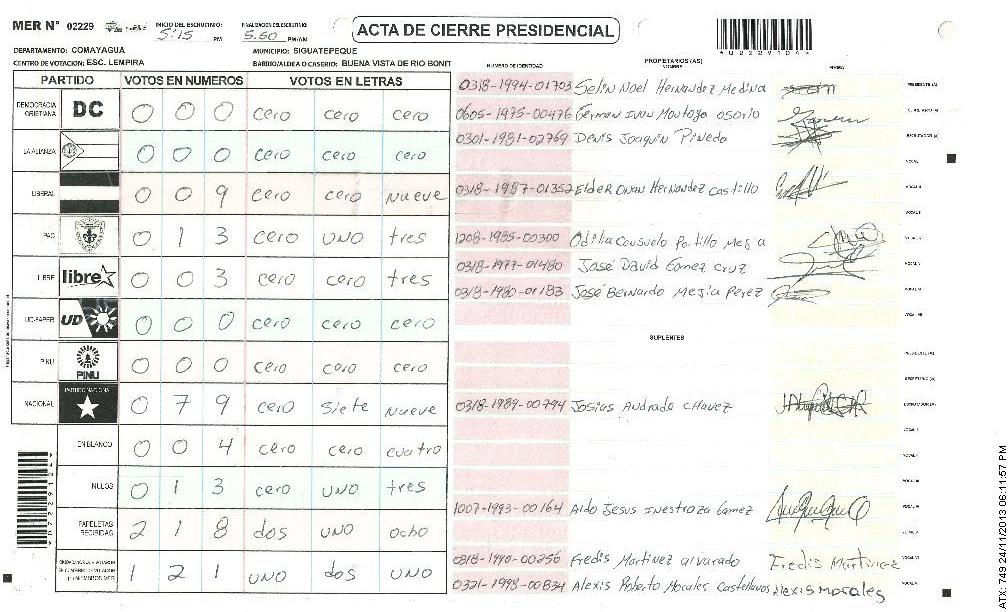 MER N° 02229
INICIO DEL ESCRUTINIO: 5:15 PM
FINALIZACION ESCRUTINIO: 5:50 PM/AM
ACTA DE CIERRE PRESIDENCIAL
DEPARTAMENTO: COMAYAGUA
MUNICIPIO: SIGUATEPEQUE
CENTRO DE VOTACION: ESC. LEMPIRA
BARRIO/ALDEA O CASERIO: BUENA VISTA DE RIO BONIT
PARTIDO VOTOS EN NUMEROS VOTOS EN LETRAS
DEMOCRACIA CRISTIANA DC 0 0 0 cero cero cero
LA ALIANZA 0 0 0 cero cero cero
LIBERAL 0 0 9 cero cero nueve
PAC 0 1 3 cero uno tres
LIBRE libre 0 0 3 cero cero tres
UD-FAPER UD 0 0 0 cero cero cero
PINU PINU 0 0 0 cero cero cero
NACIONAL PARTIDO NACIONAL 0 7 9 cero siete nueve
EN BLANCO 0 0 4 cero cero cuatro
NULOS 0 1 3 cero uno tres
PAPELETAS RECIBIDAS 2 1 8 dos uno ocho
1 2 1 uno dos uno
NUMERO DE IDENTIDAD PROPIETARIOS (AS) NOMBRE FIRMA
0318-1994-01703 Selin Noel Hernandez Medina PRESIDENTE (A)
0605-1975-00476 German Ivan Montoya osorio SECRETARIO (A)
0301-1981-02769 Denis Joaquin Pineda ESCRUTADOR (A)
VOCAL I
0318-1987-01352 Elder Onan Hernandez Castillo VOCAL II
VOCAL III
1208-1985-00300 Odilia Consuelo Portillo Mejia
0318-1977-01480 José David Gomez Cruz
0318-1980-01183 José Bernardo Mejia Perez
SUPLENTES
PRESIDENTE (A)
SECRETARIO (A)
0318-1989-00794 Josias Andrade Chavez ESCRUTADOR (A)
1007-1993-00164 Aldo Jesus inestroza Gamez
0318-1990-00256 Fredis Martinez alvarado Fredis Martinez
0321-1998-00834 Alexis Roberto Morales Castellanos Alexis morales
ATX: 749 24/11/2013 06:11:57 PM